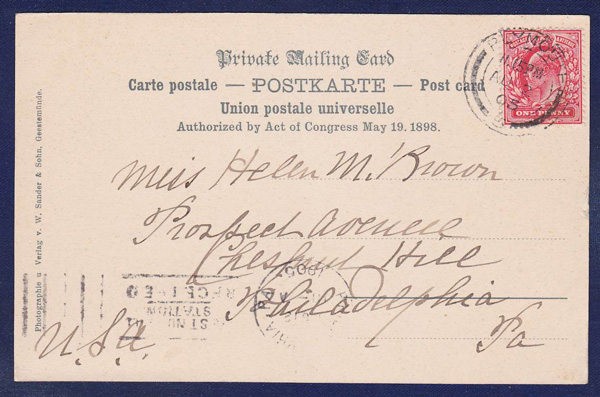 Private Mailing Card
Carte postale — POSTKARTE — Post card
Union postale universelle
Authorized by Act of Congress May 19. 1898.
PLYMOUTH
ONE PENNY
Miss Helen McBrown
Prospect Avenue
Chesnut Hill
Philadelphia
Pa
U.S.A.
1905
RECEIVED
STATION
Photographie u Verlag v. W. Sander & Sohn, Geestemünde.